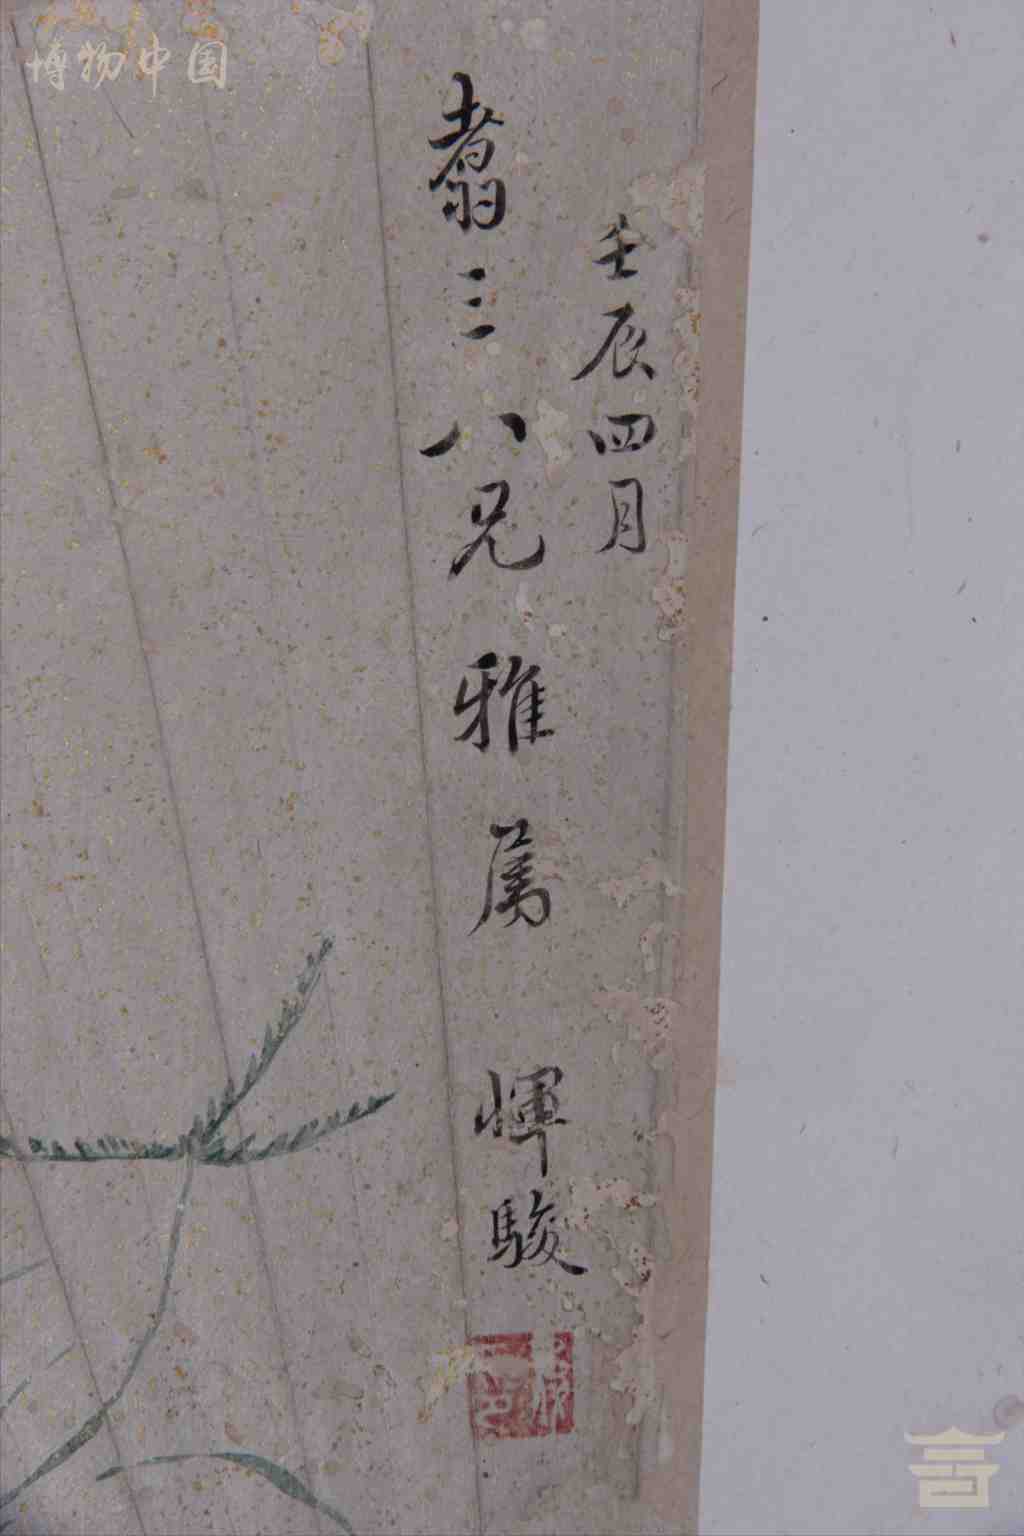 壬辰四月
翥三八兄雅属
惲駿
博物中国